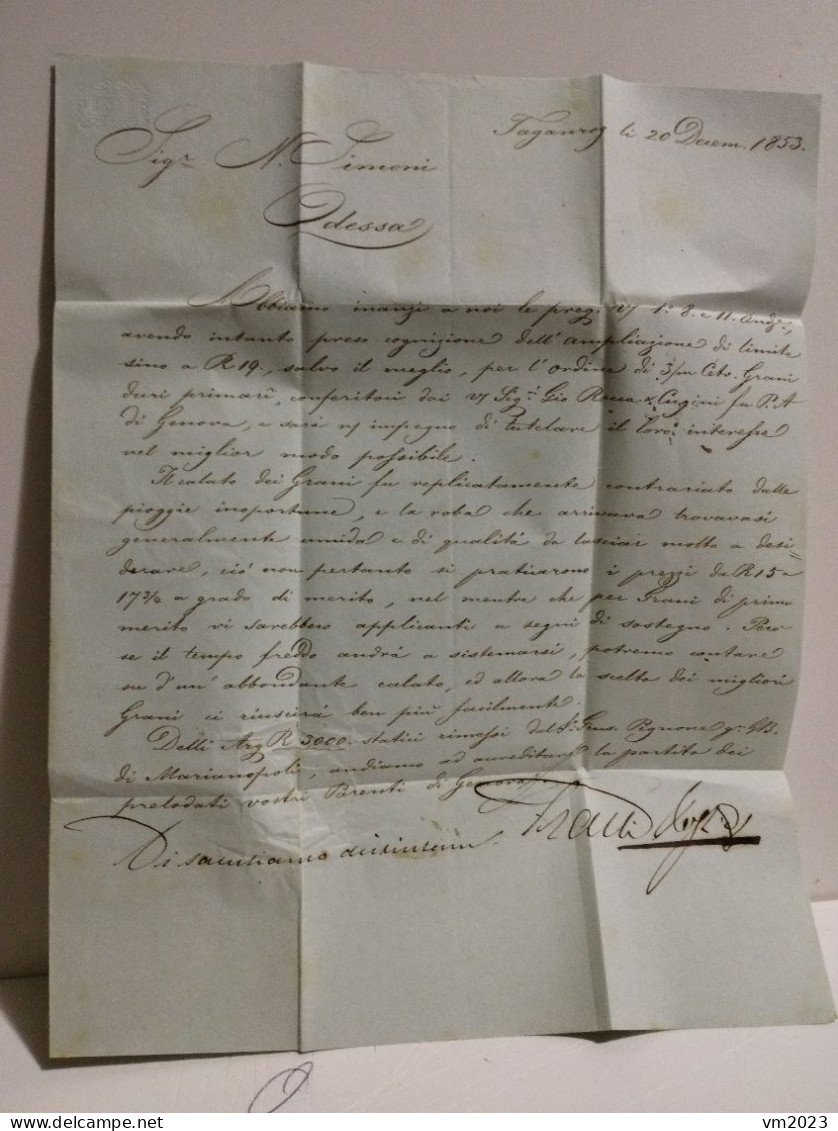 Taganrog li 20 Decem. 1853.
Sigr. N. Simoni
Odessa
Abbiamo inanzi a noi le preg. vs/ 1º 8. e 11. And.,
avendo intanto preso cognizione dell'ampliazione di limite
sino a R 19., salvo il meglio, per l'ordine di 3/m Ceto. Grani
duri primari, conferitoci dai vs/ Sigi. Gio Rocca & Cugini fu P.A
di Genova, e sarà ns/ impegno di tutelare il loro interesse
nel miglior modo possibile.
Il calato dei Grani fu replicatamente contrariato dalle
pioggie inoportune, e la roba che arrivava trovavasi
generalmente umida e di qualità da lasciar molto a desi=
derare, ciò non pertanto si praticarono i prezzi da R 15 a
17 3/4 a grado di merito, nel mentre che per Grani di primo
merito vi sarebbero applicanti a segni di sostegno. Però
se il tempo freddo andrà a sistemarsi, potremo contare
su d'un' abbondante calato, ed allora la scelta dei migliori
Grani ci riuscirà ben più facilmente.
Delli Arg R 3000. statici rimessi dal Sr. Fran. Pignone qm. GB.
di Marianopoli, andiamo ad accreditare la partita dei
prelodati vostri Brenti di Genova.
Vi salutiamo distintam.
Fratelli
vm2023